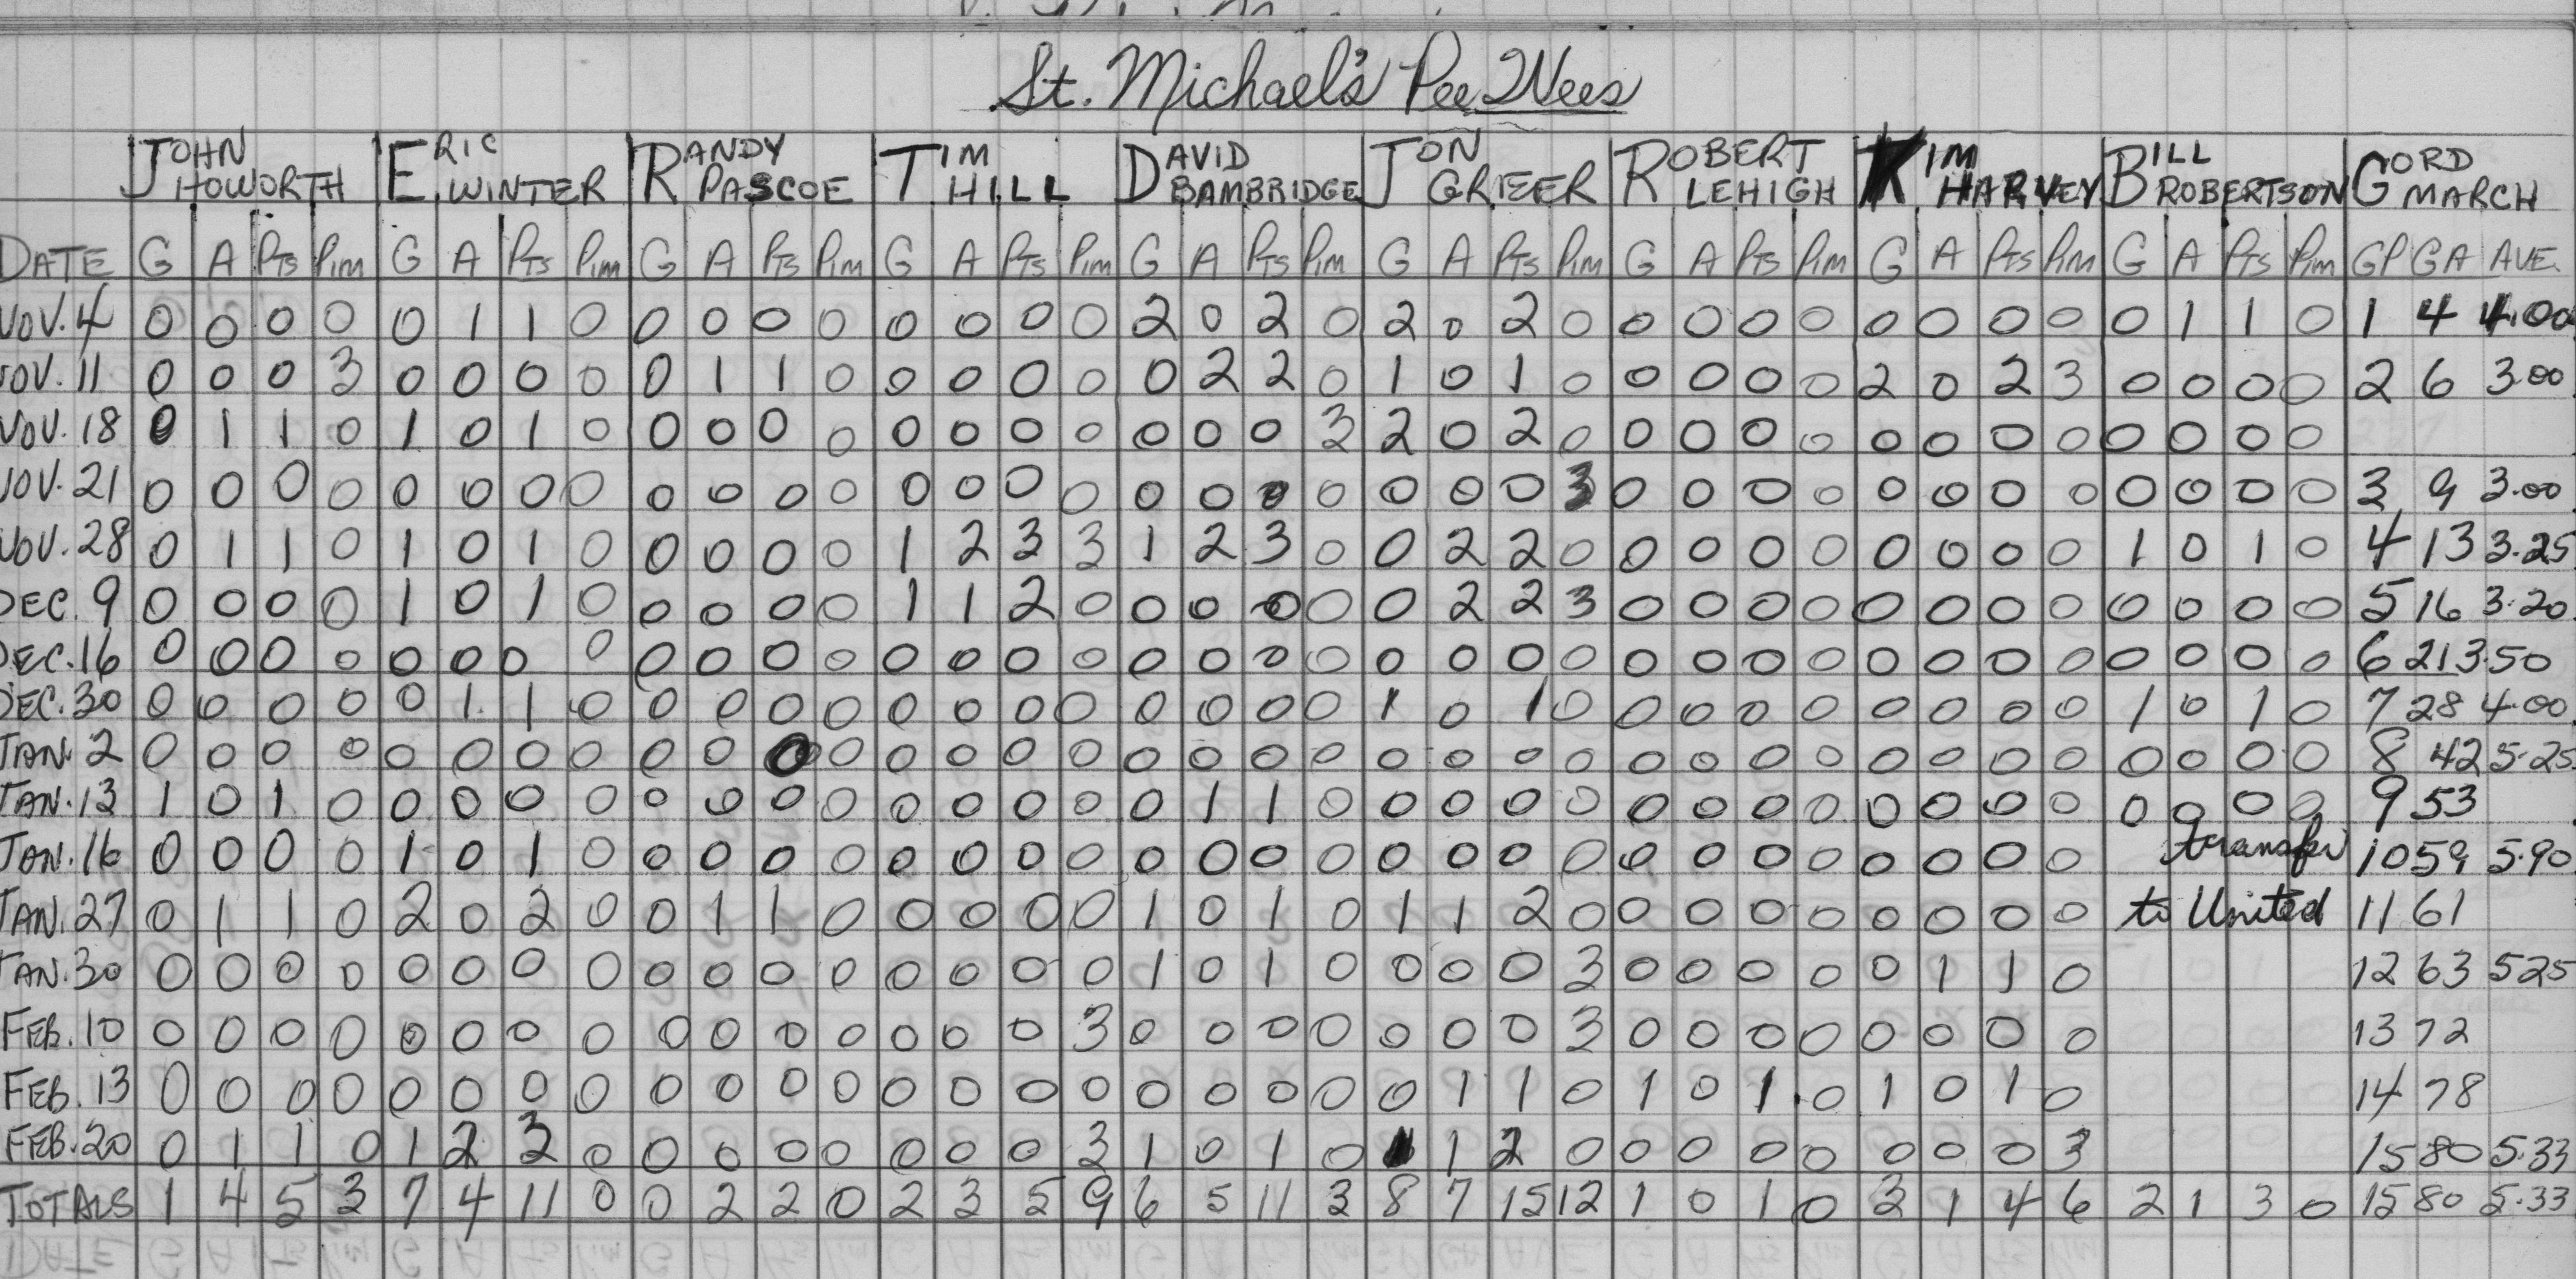 St. Michael's Pee Wees
JOHN HOWORTH ERIC WINTER RANDY PASCOE TIM HILL DAVID BAMBRIDGE JON GRIEER ROBERT LEHIGH KIM HARVEY BILL ROBERTSON GORD MARCH
DATE G A PTS PIM G A PTS PIM G A PTS PIM G A PTS PIM G A PTS PIM G A PTS PIM G A PTS PIM G A PTS PIM G A PTS PIM GP GA AVE.
NOV. 4 0 0 0 0 0 1 1 0 0 0 0 0 0 0 0 0 2 0 2 0 2 0 2 0 0 0 0 0 0 0 0 0 0 1 1 0 1 4 4.00
NOV. 11 0 0 0 3 0 0 0 0 0 1 1 0 0 0 0 0 0 2 2 0 1 0 1 0 0 0 0 0 2 0 2 3 0 0 0 0 2 6 3.00
NOV. 18 0 1 1 0 1 0 1 0 0 0 0 0 0 0 0 0 0 0 0 3 2 0 2 0 0 0 0 0 0 0 0 0 0 0 0 0
NOV. 21 0 0 0 0 0 0 0 0 0 0 0 0 0 0 0 0 0 0 0 0 0 0 0 3 0 0 0 0 0 0 0 0 0 0 0 0 3 9 3.00
NOV. 28 0 1 1 0 1 0 1 0 0 0 0 0 1 2 3 3 1 2 3 0 0 2 2 0 0 0 0 0 0 0 0 0 1 0 1 0 4 13 3.25
DEC. 9 0 0 0 0 1 0 1 0 0 0 0 0 1 1 2 0 0 0 0 0 0 2 2 3 0 0 0 0 0 0 0 0 0 0 0 0 5 16 3.20
DEC. 16 0 0 0 0 0 0 0 0 0 0 0 0 0 0 0 0 0 0 0 0 0 0 0 0 0 0 0 0 0 0 0 0 0 0 0 0 6 21 3.50
DEC. 30 0 0 0 0 0 1 1 0 0 0 0 0 0 0 0 0 0 0 0 0 1 0 1 0 0 0 0 0 0 0 0 0 1 0 1 0 7 28 4.00
JAN. 2 0 0 0 0 0 0 0 0 0 0 0 0 0 0 0 0 0 0 0 0 0 0 0 0 0 0 0 0 0 0 0 0 0 0 0 0 8 42 5.25
JAN. 13 1 0 1 0 0 0 0 0 0 0 0 0 0 0 0 0 0 1 1 0 0 0 0 0 0 0 0 0 0 0 0 0 0 0 0 0 9 53
JAN. 16 0 0 0 0 1 0 1 0 0 0 0 0 0 0 0 0 0 0 0 0 0 0 0 0 0 0 0 0 0 0 0 0 transfer 10 59 5.90
JAN. 27 0 1 1 0 2 0 2 0 0 1 1 0 0 0 0 0 1 0 1 0 1 1 2 0 0 0 0 0 0 0 0 0 to United 11 61
JAN. 30 0 0 0 0 0 0 0 0 0 0 0 0 0 0 0 0 1 0 1 0 0 0 0 3 0 0 0 0 0 1 1 0 12 63 525
FEB. 10 0 0 0 0 0 0 0 0 0 0 0 0 0 0 0 3 0 0 0 0 0 0 0 3 0 0 0 0 0 0 0 0 13 72
FEB. 13 0 0 0 0 0 0 0 0 0 0 0 0 0 0 0 0 0 0 0 0 0 1 1 0 1 0 1 0 1 0 1 0 14 78
FEB. 20 0 1 1 0 1 2 3 0 0 0 0 0 0 0 0 3 1 0 1 0 1 1 2 0 0 0 0 0 0 0 0 3 15 80 5.33
TOTALS 1 4 5 3 7 4 11 0 0 2 2 0 2 3 5 9 6 5 11 3 8 7 15 12 1 0 1 0 3 1 4 6 2 1 3 0 15 80 5.33